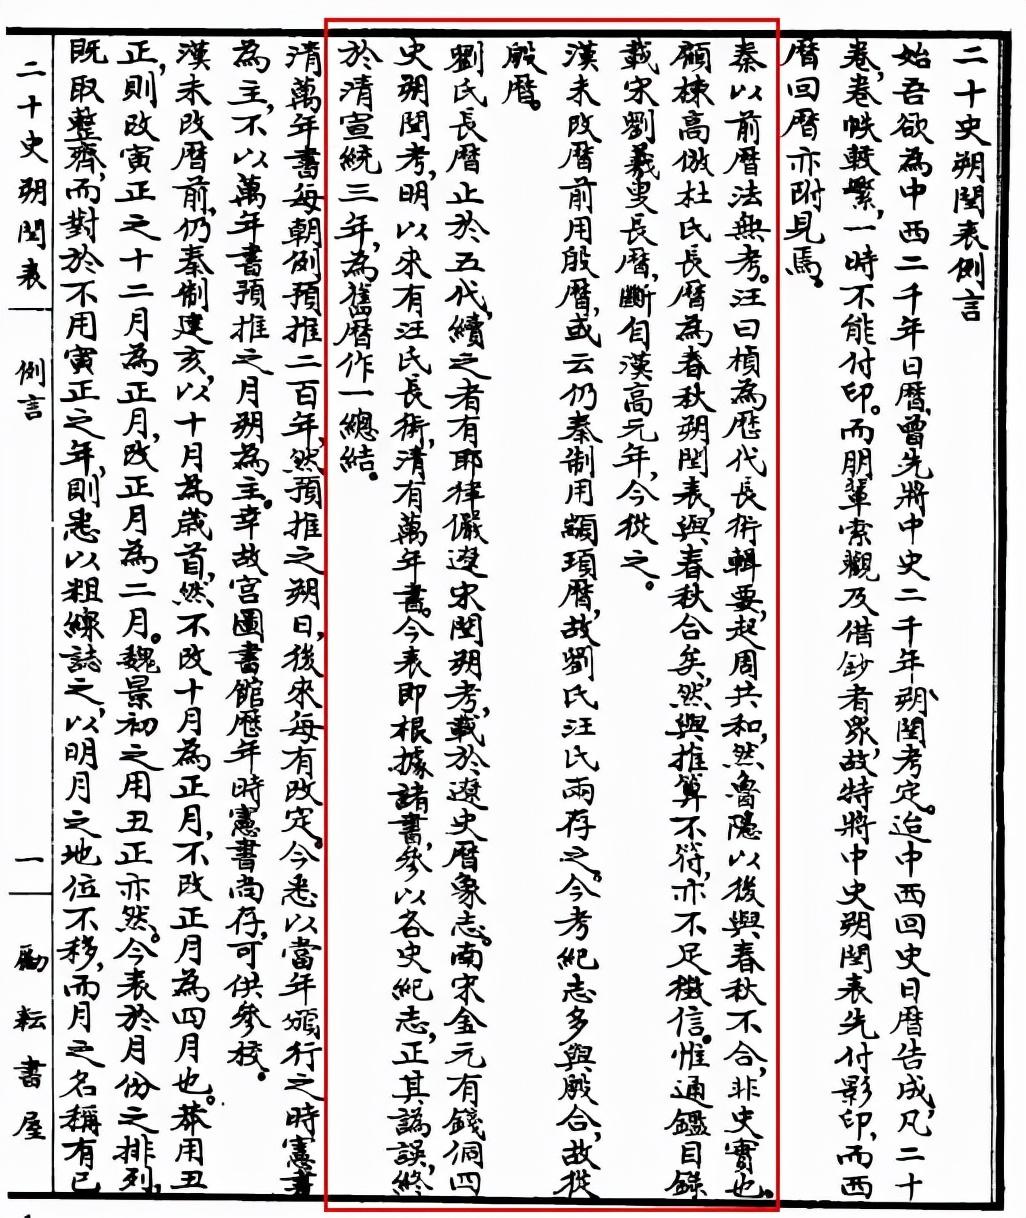 二十史朔閏表例言
始吾欲為中西二千年日曆,曾先將中史二千年朔閏考定。迨中西回史日曆告成,凡二十
卷,卷帙輕繁,一時不能付印。而朋輩索觀及借鈔者眾,故特將中史朔閏表先付影印,而西
曆回曆亦附見焉。
秦以前曆法無考。汪曰楨為歷代長術輯要,起周共和,然魯隱以後與春秋不合,非史實也。
顧棟高倣杜氏長曆為春秋朔閏表,與春秋合矣,然與推算不符,亦不足徵信。惟通鑑目錄
載宋劉羲叟長曆,斷自漢高元年,今從之。
漢未改曆前用殷曆,或云仍秦制用顓頊曆,故劉氏汪氏兩存之。今考紀志多與殷合,故從
殷曆。
劉氏長曆止於五代,續之者有耶律儼遼宋閏朔考,載於遼史曆象志。南宋金元有錢侗四
史朔閏考,明以來有汪氏長術,清有萬年書。今表即根據諸書,參以各史紀志,正其譌誤,終
於清宣統三年,為舊曆作一總結。
清萬年書每朝例預推二百年,然預推之朔日,後來每有改定。今悉以當年頒行之時憲書
為主,不以萬年書預推之月朔為主。幸故宮圖書館歷年時憲書尚存,可供參校。
漢未改曆前,仍秦制建亥,以十月為歲首,然不改十月為正月,不改正月為四月也。莽用丑
正,則改寅正之十二月為正月,改正月為二月。魏景初之用丑正亦然。今表於月份之排列,
既取整齊,而對於不用寅正之年,則悉以粗線誌之,以明月之地位不移,而月之名稱有已
二十史朔閏表
例言
一
勵耘書屋